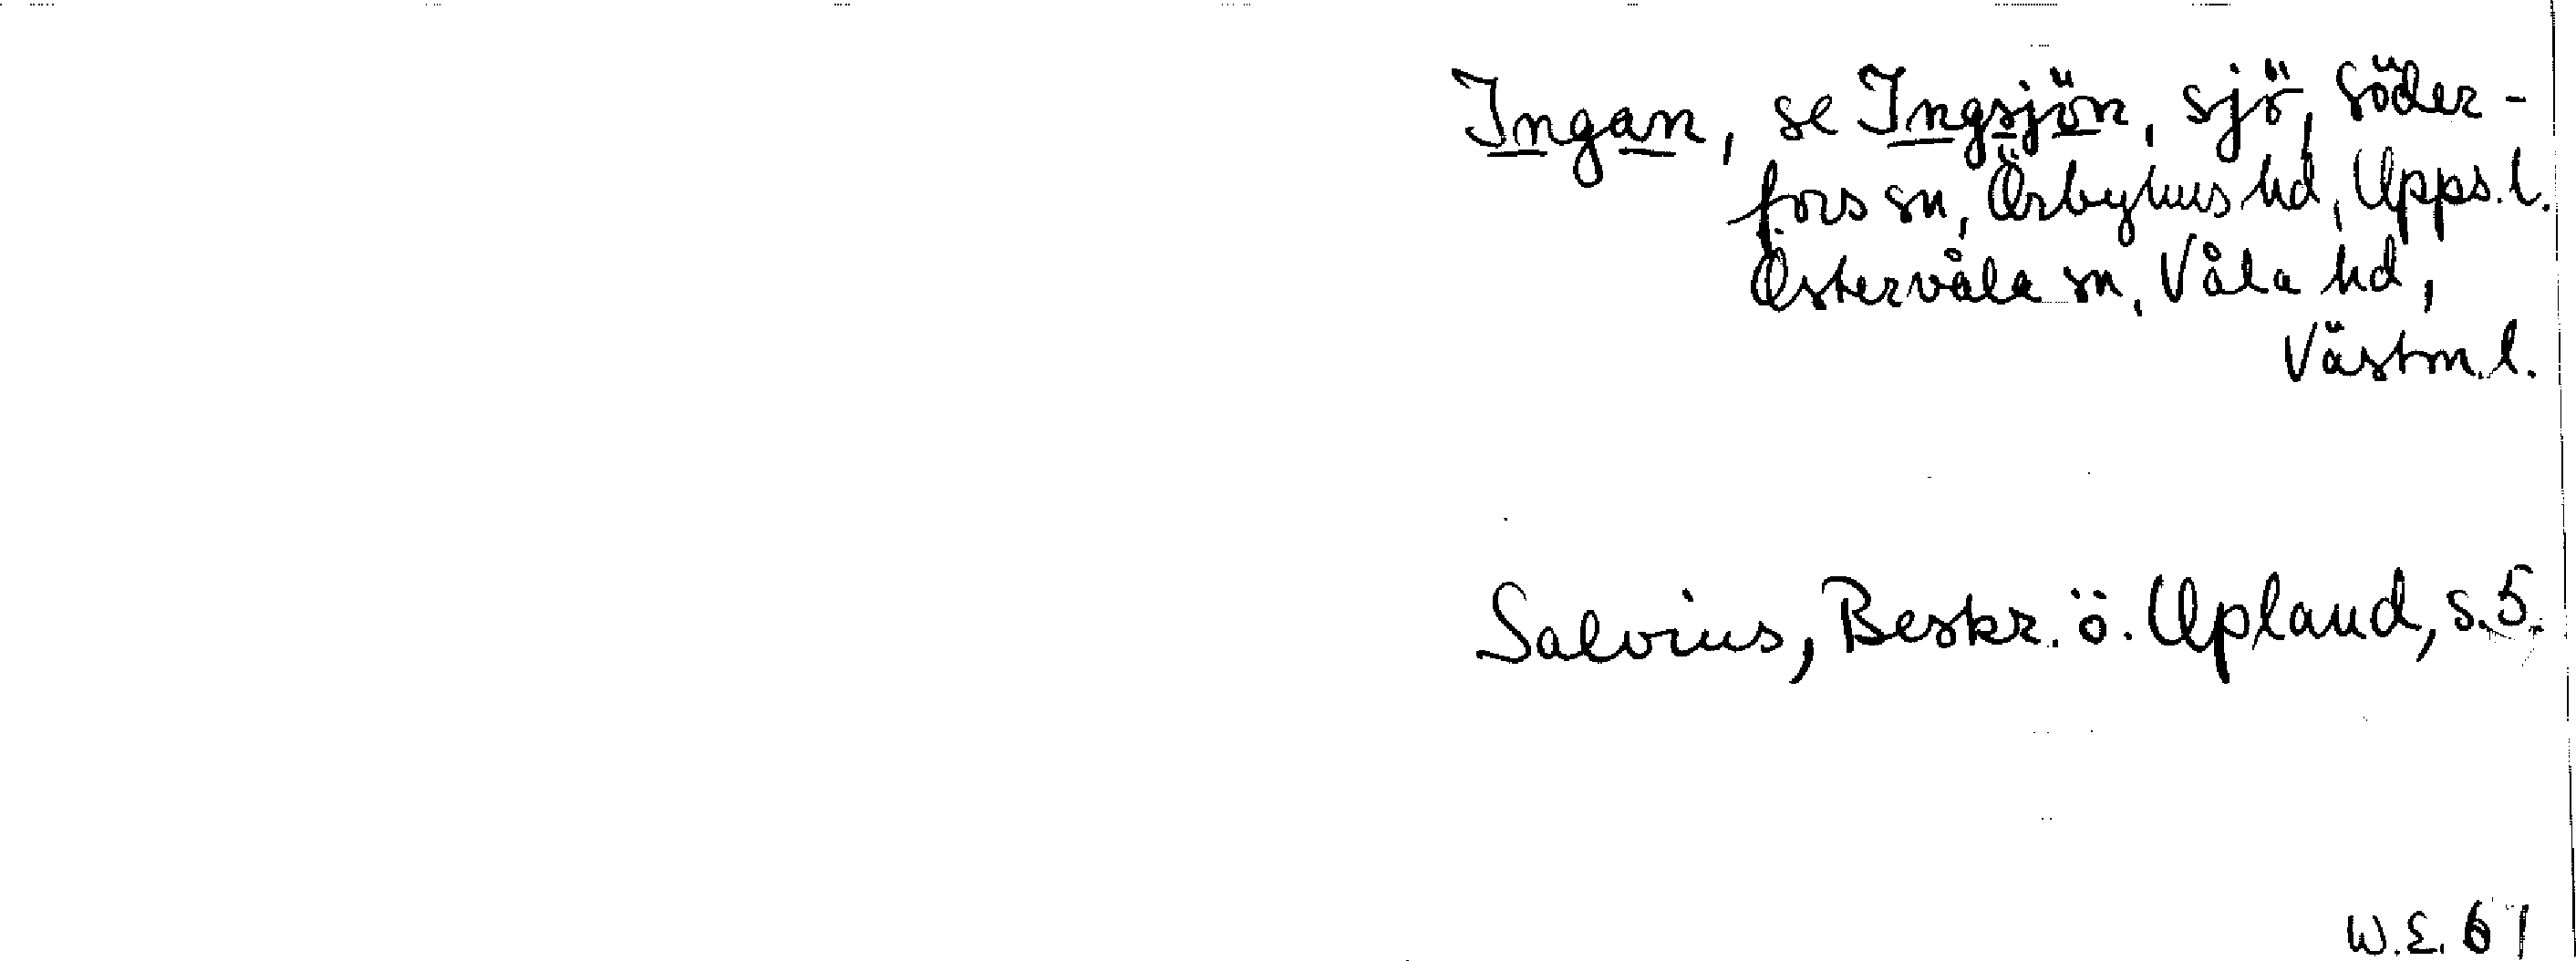 Ingan, se Ingsjön, sjö, Söder-
fors sn, Örbyhus hd, Upps. l.
Östervåla sn, Våla hd,
Västm. l.
Salvius, Beskr. ö. Upland, s. 5.
W.E. 61